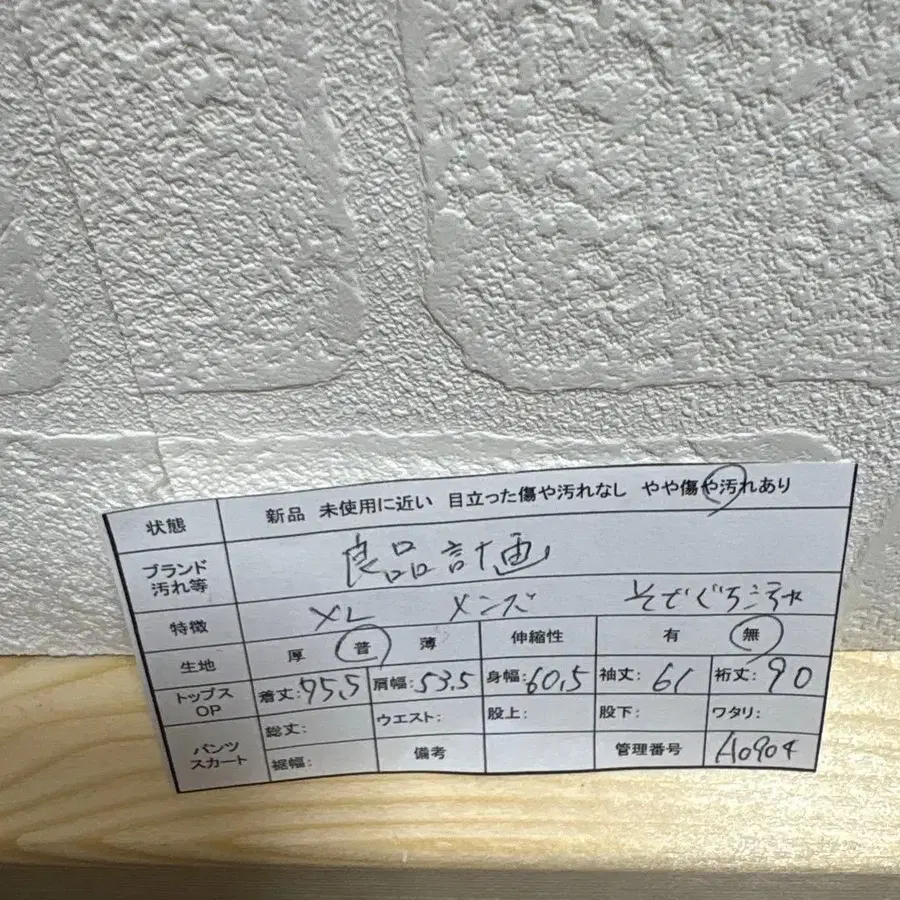 状態 新品 未使用に近い 目立った傷や汚れなし やや傷や汚れあり
ブランド 良品計画
汚れ等
特徴 XL メンズ そでぐち汚れ
生地 厚 普 薄 伸縮性 有 無
トップス OP 着丈:95.5 肩幅:53.5 身幅:60.5 袖丈:61 裄丈:90
パンツ スカート 総丈: ウエスト: 股上: 股下: ワタリ:
裾幅: 備考 管理番号 A0904